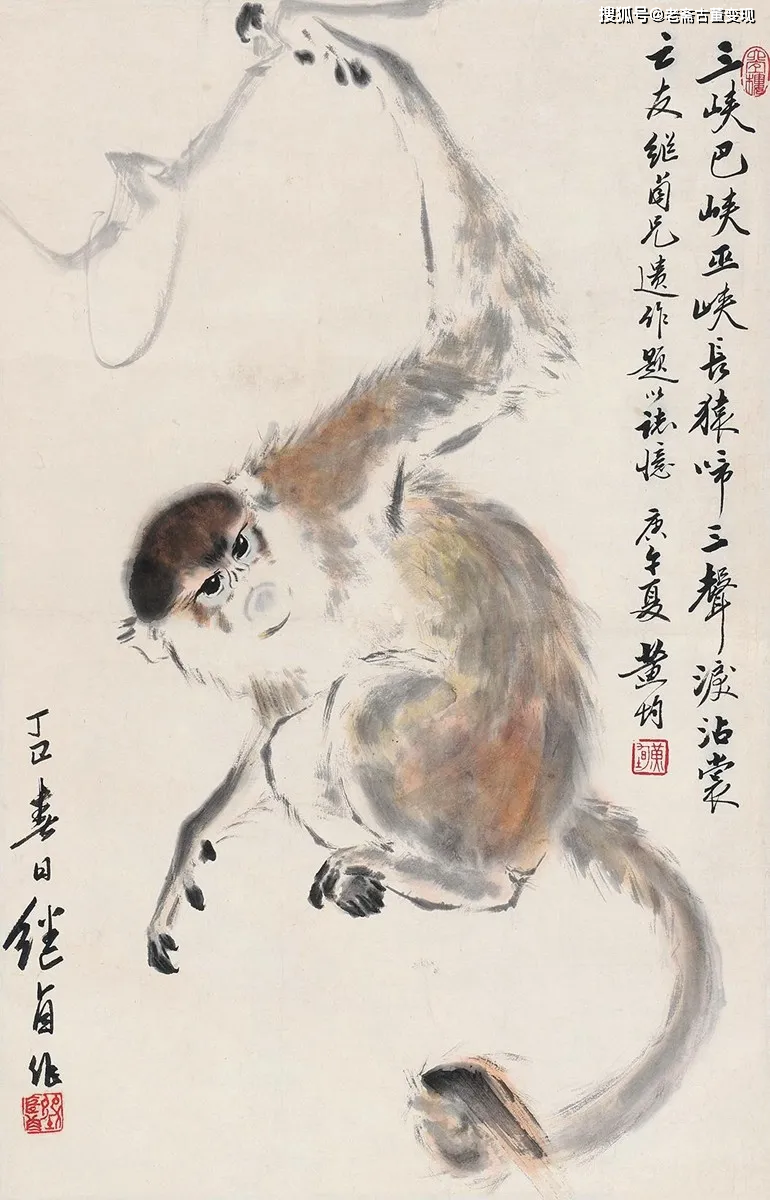 搜狐号@老斋古董变现
三峡巴峡巫峡長猿啼三聲淚沾裳
亡友继卣兄遗作题以誌憶 庚午夏 黄均
丁巳春日继卣作